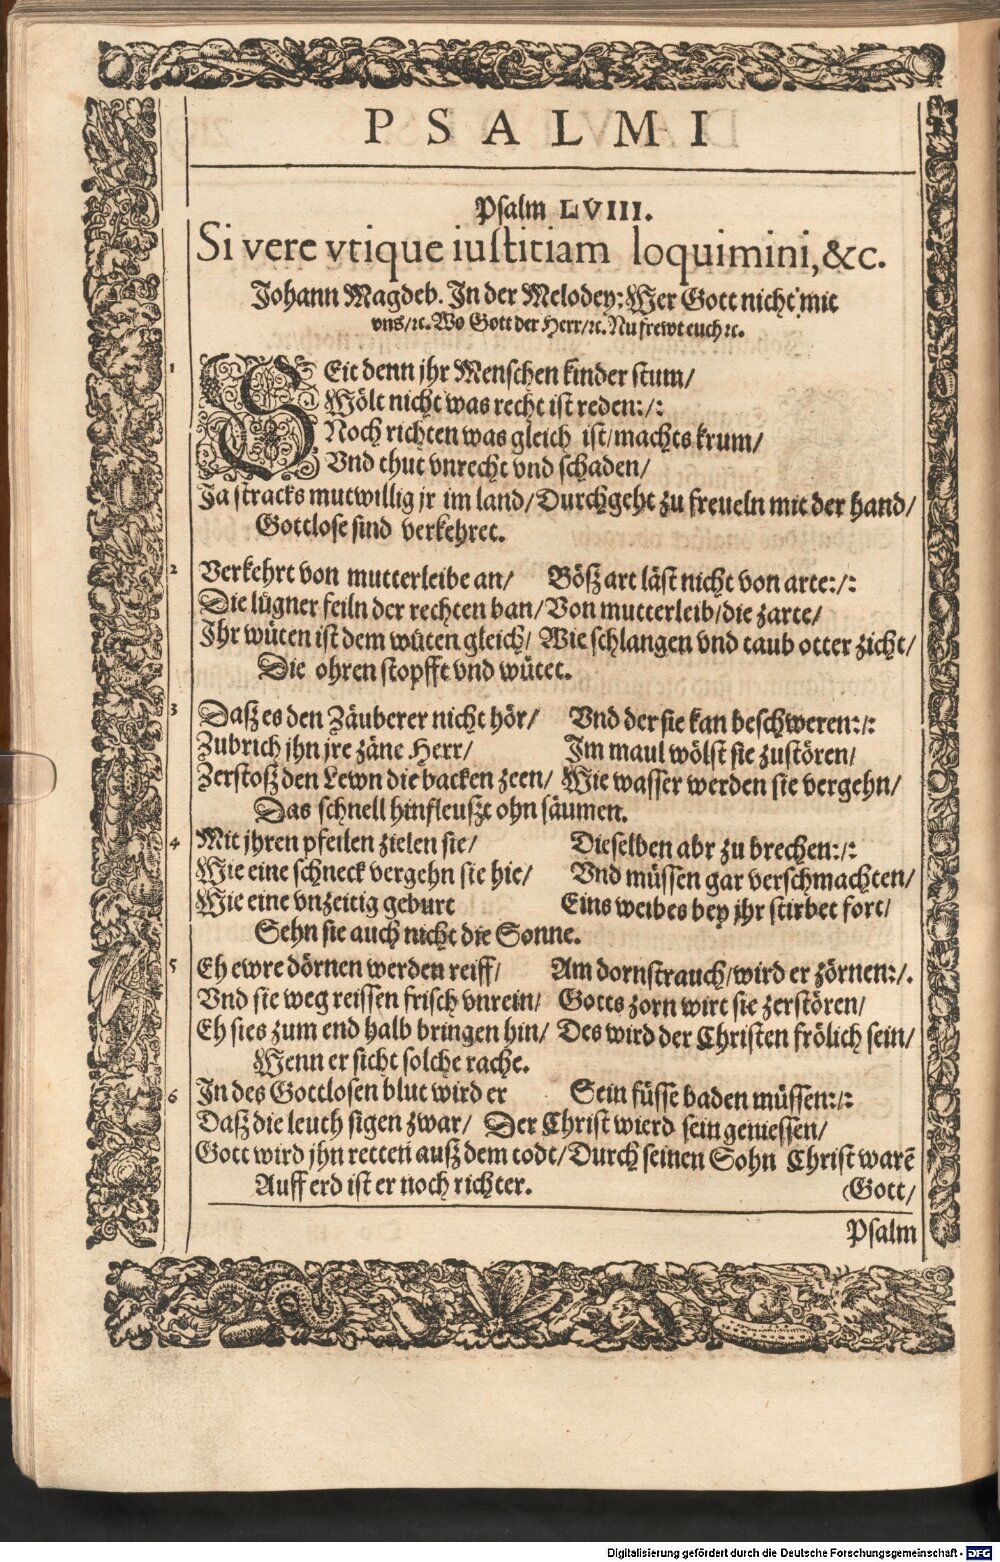 PSALMI
Psalm LVIII.
Si vere vtique iustitiam loquimini, &c.
Johann Magdeb. In der Melodey: Wer Gott nicht mit
vns/ɾc. Wo Gott der Herr/ɾc. Nu frewt euch ɾc.
1 SEit denn jhr Menschen kinder stum/
Wölt nicht was recht ist reden:/:
Noch richten was gleich ist/machts krum/
Vnd thut vnrecht vnd schaden/
Ja stracks mutwillig jr im land/Durchgeht zu freueln mit der hand/
Gottlose sind verkehret.
2 Verkehrt von mutterleibe an/ Bößz art läst nicht von arte:/:
Die lügner feiln der rechten ban/Von mutterleib/die zarte/
Ihr wüten ist dem wüten gleich/ Wie schlangen vnd taub otter zicht/
Die ohren stopfft vnd wütet.
3 Daß es den Zäuberer nicht hör/ Vnd der sie kan beschweren:/:
Zubrich jhn jre zäne Herr/ Im maul wölst sie zustören/
Zerstoß den Lewn die backen zeen/ Wie wasser werden sie vergehn/
Das schnell hinfleußt ohn säumen.
4 Mit jhren pfeilen zielen sie/ Dieselben abr zu brechen:/:
Wie eine schneck vergehn sie hie/ Vnd müssen gar verschmachten/
Wie eine vnzeitig geburt Eins weibes bey jhr stirbet fort/
Sehn sie auch nicht die Sonne.
5 Eh ewre dörnen werden reiff/ Am dornstrauch/wird er zörnen:/.
Vnd sie weg reissen frisch vnrein/ Gotts zorn wirt sie zerstören/
Eh sies zum end halb bringen hin/ Des wird der Christen frölich sein/
Wenn er sicht solche rache.
6 In des Gottlosen blut wird er Sein füsse baden müssen:/:
Daß die leuth sigen zwar/ Der Christ wierd sein geniessen/
Gott wird jhn retten auß dem todt/Durch seinen Sohn Christ warē
Auff erd ist er noch richter. (Gott/
Psalm
Digitalisierung gefördert durch die Deutsche Forschungsgemeinschaft - DFG